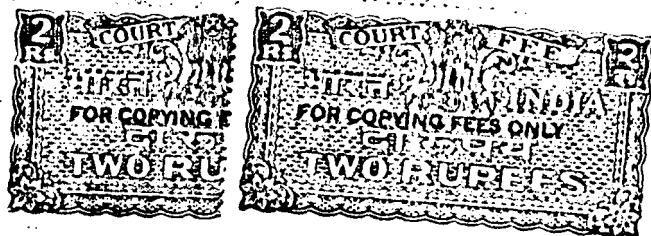 2 COURT
Rs.
FOR COPYING F
TWO RU
2 COURT FEE 2
Rs.
भारत INDIA
FOR COPYING FEES ONLY
दो रुपये
TWO RUPEES